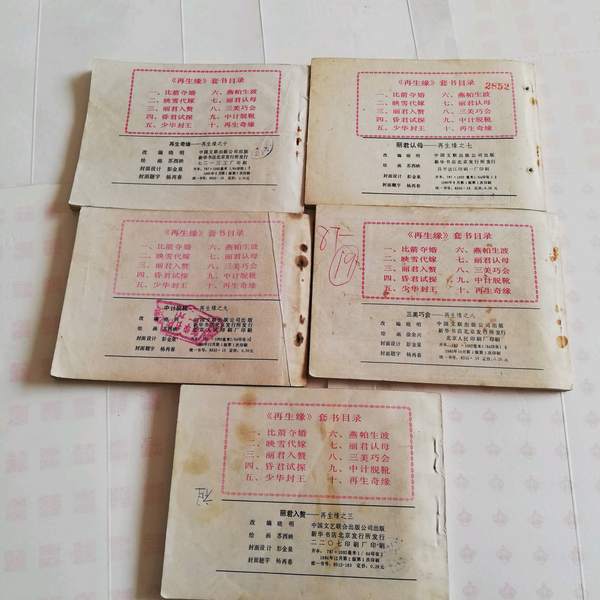 《再生缘》套书目录
一、比箭夺婚 六、燕帕生波
二、映雪代嫁 七、丽君认母
三、丽君入赘 八、三美巧会
四、昏君试探 九、中计脱靴
五、少华封王 十、再生奇缘
再生奇缘——再生缘之十
改编 晓明
绘画 苏西映
封面设计 彭金泉
封面题字 杨再春
中国文联出版公司出版
新华书店北京发行所发行
《再生缘》套书目录
2852
一、比箭夺婚 六、燕帕生波
二、映雪代嫁 七、丽君认母
三、丽君入赘 八、三美巧会
四、昏君试探 九、中计脱靴
五、少华封王 十、再生奇缘
丽君认母——再生缘之七
改编 晓明
封面设计 彭金泉
封面题字 杨再春
中国文联出版公司出版
新华书店北京发行所发行
《再生缘》套书目录
一、比箭夺婚 六、燕帕生波
二、映雪代嫁 七、丽君认母
三、丽君入赘 八、三美巧会
四、昏君试探 九、中计脱靴
五、少华封王 十、再生奇缘
中计脱靴——再生缘之九
绘画 苏西映
封面设计 彭金泉
封面题字 杨再春
中国文联出版公司出版
新华书店北京发行所发行
《再生缘》套书目录
一、比箭夺婚 六、燕帕生波
二、映雪代嫁 七、丽君认母
三、丽君入赘 八、三美巧会
四、昏君试探 九、中计脱靴
五、少华封王 十、再生奇缘
三美巧会——再生缘之八
改编 晓明
封面设计 彭金泉
封面题字 杨再春
中国文联出版公司出版
新华书店北京发行所发行
北京人民印刷厂印刷
《再生缘》套书目录
一、比箭夺婚 六、燕帕生波
二、映雪代嫁 七、丽君认母
三、丽君入赘 八、三美巧会
四、昏君试探 九、中计脱靴
五、少华封王 十、再生奇缘
丽君入赘——再生缘之三
改编 晓明
绘画 苏西映
封面设计 彭金泉
封面题字 杨再春
中国文艺联合出版公司出版
新华书店北京发行所发行
二二〇七印刷厂印刷